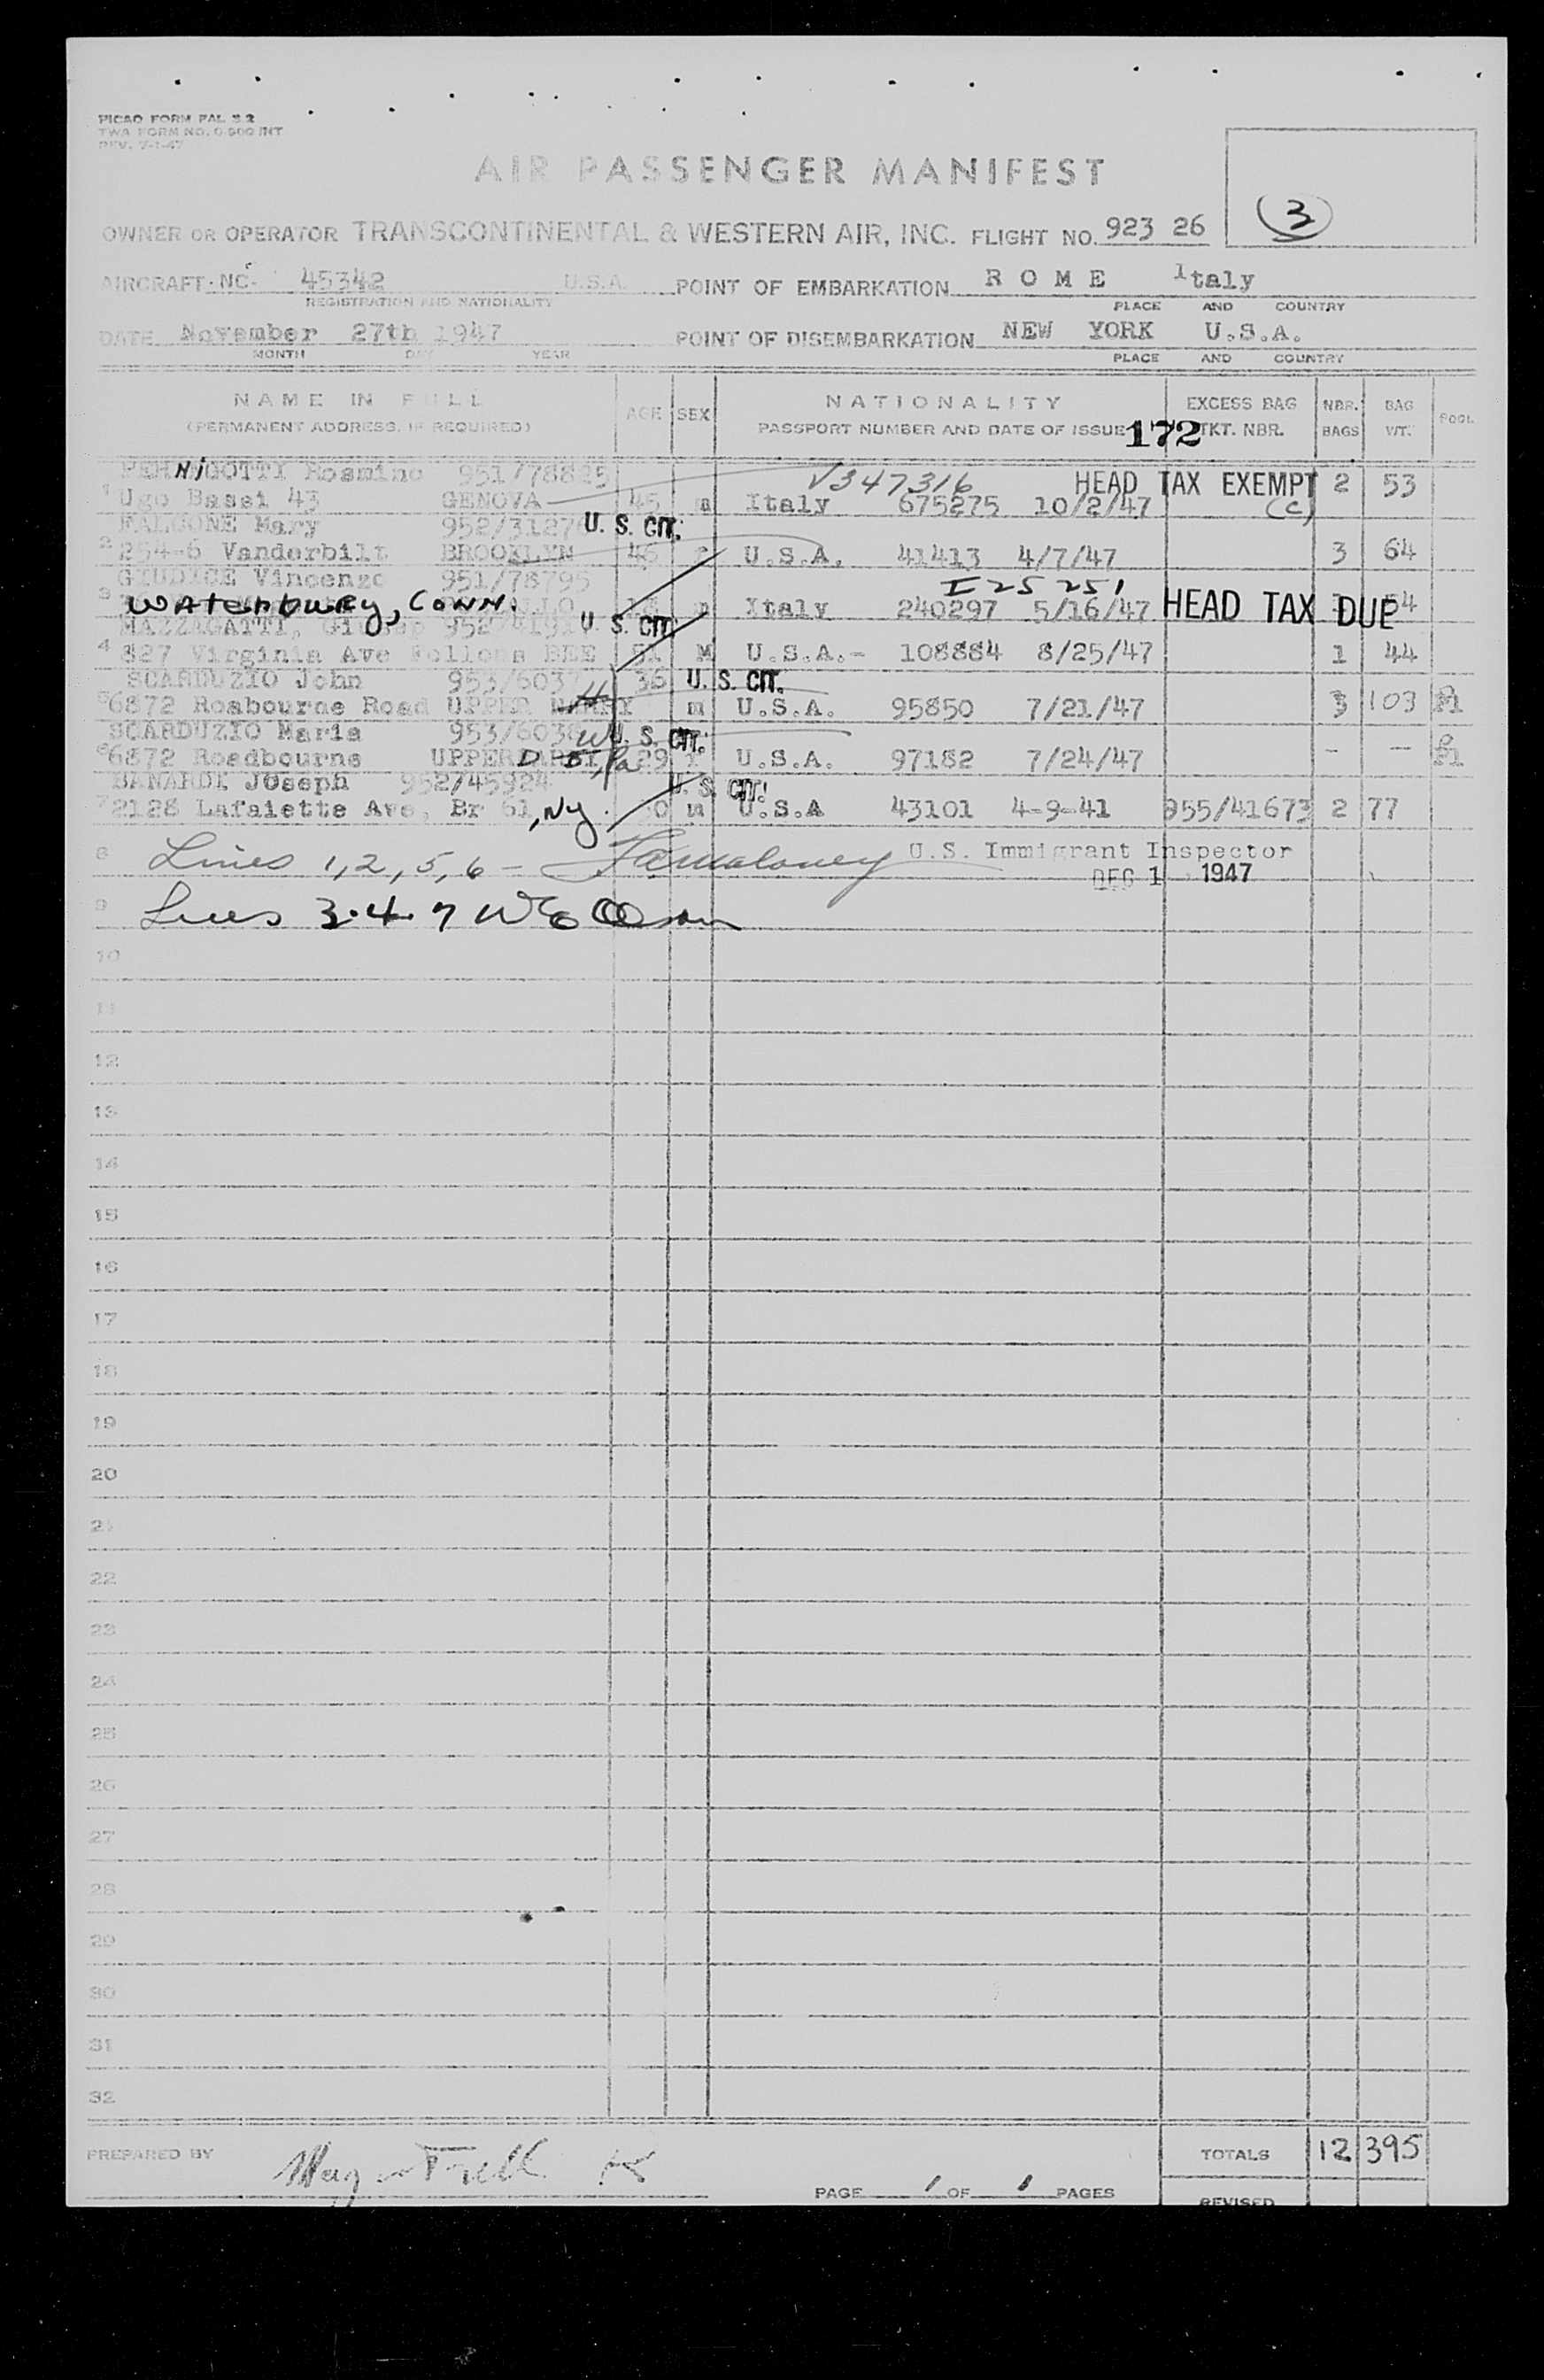 PICAO FORM PAL S 2
TWA FORM NO. 0-500 INT
REV. 7-1-47
AIR PASSENGER MANIFEST
(3)
OWNER OR OPERATOR TRANSCONTINENTAL & WESTERN AIR, INC. FLIGHT NO. 923 26
AIRCRAFT NC. 45342 U.S.A. POINT OF EMBARKATION R O M E Italy
REGISTRATION AND NATIONALITY PLACE AND COUNTRY
DATE November 27th 1947 POINT OF DISEMBARKATION NEW YORK U.S.A.
MONTH DAY YEAR PLACE AND COUNTRY
NAME IN FULL AGE SEX NATIONALITY EXCESS BAG NBR. BAG POOL
(PERMANENT ADDRESS, IF REQUIRED) PASSPORT NUMBER AND DATE OF ISSUE 172 TKT. NBR. BAGS WT.
PERNIGOTTI Rosmino 951/78825 V347316 HEAD TAX EXEMPT 2 53
1 Ugo Bassi 43 GENOVA 45 m Italy 675275 10/2/47 (c)
FALCONE Mary U. S. CIT.
2 254-6 Vanderbilt BROOKLYN 46 f U.S.A. 41413 4/7/47 3 64
GIUDICE Vincenzo 951/78795 I 25 251
3 Waterbury, Conn. m Italy 240297 5/16/47 HEAD TAX DUE 54
MAZZAGATTI, U. S. CIT
4 827 Virginia Ave Follons BEE 51 M U.S.A.- 108884 8/25/47 1 44
SCARDUZIO John 36 U. S. CIT.
5 6872 Roabourne Road UPPER m U.S.A. 95850 7/21/47 3 103
SCARDUZIO Maria U. S. CIT.
6 6872 Roadbourne UPPER Pa 29 f U.S.A. 97182 7/24/47 - --
BANARDE JOseph 952/45924 U. S. CIT.
7 2128 Lafaiette Ave, Br 61, Ny m U.S.A 43101 4-9-41 955/41673 2 77
8 Lines 1, 2, 5, 6 - U.S. Immigrant Inspector
DEC 1 1947
9 Lines 3.4.7
10
11
12
13
14
15
16
17
18
19
20
21
22
23
24
25
26
27
28
29
30
31
32
PREPARED BY TOTALS 12 395
PAGE 1 OF 1 PAGES
REVISED